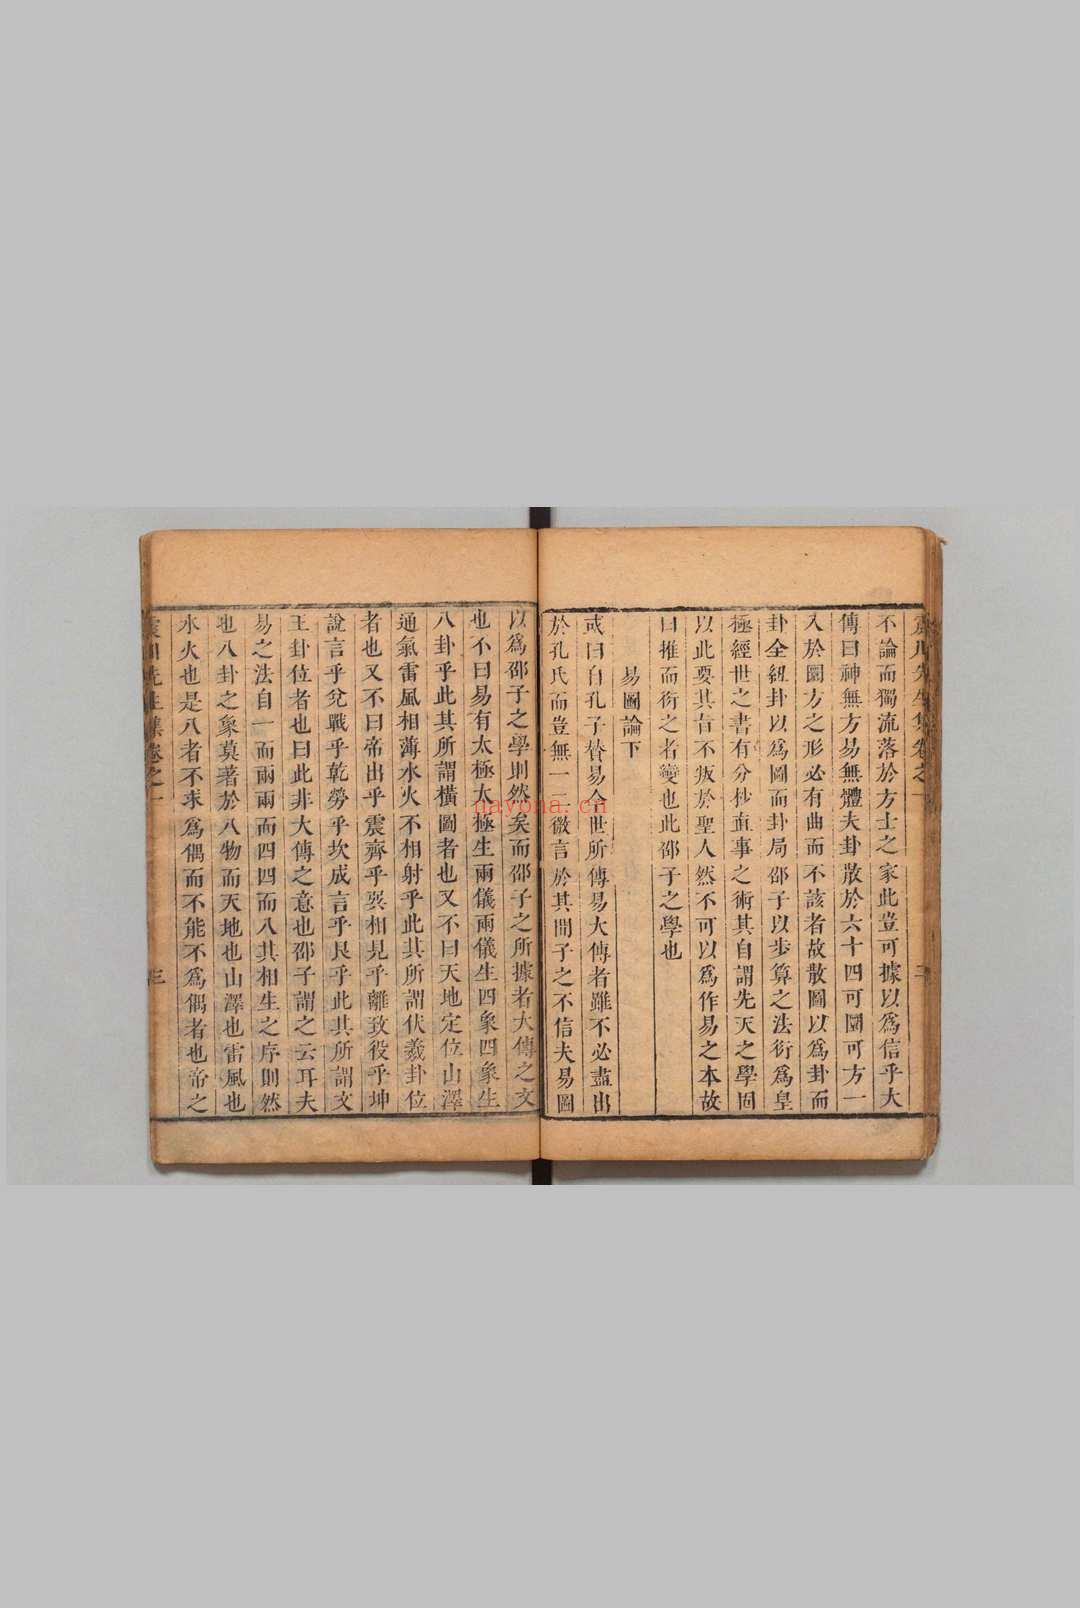 震川先生集卷之一
三
不論而獨流落於方士之家此豈可據以爲信乎大
傳曰神無方易無體夫卦散於六十四可圜可方一
入於圜方之形必有曲而不該者故散圖以爲卦而
卦全紐卦以爲圖而卦局邵子以步算之法衍爲皇
極經世之書有分杪直事之術其自謂先天之學固
以此要其旨不叛於聖人然不可以爲作易之本故
曰推而衍之者變也此邵子之學也
易圖論下
或曰自孔子贊易今世所傳易大傳者雖不必盡出
於孔氏而豈無一二微言於其間子之不信夫易圖
以爲邵子之學則然矣而邵子之所據者大傳之文
也不曰易有太極太極生兩儀兩儀生四象四象生
八卦乎此其所謂橫圖者也又不曰天地定位山澤
通氣雷風相薄水火不相射乎此其所謂伏羲卦位
者也又不曰帝出乎震齊乎巽相見乎離致役乎坤
說言乎兌戰乎乾勞乎坎成言乎艮乎此其所謂文
王卦位者也曰此非大傳之意也邵子謂之云耳夫
易之法自一而兩兩而四四而八其相生之序則然
也八卦之象莫著於八物而天地也山澤也雷風也
水火也是八者不求爲偶而不能不爲偶者也帝之
震川先生集卷之一
三
nayona.cn